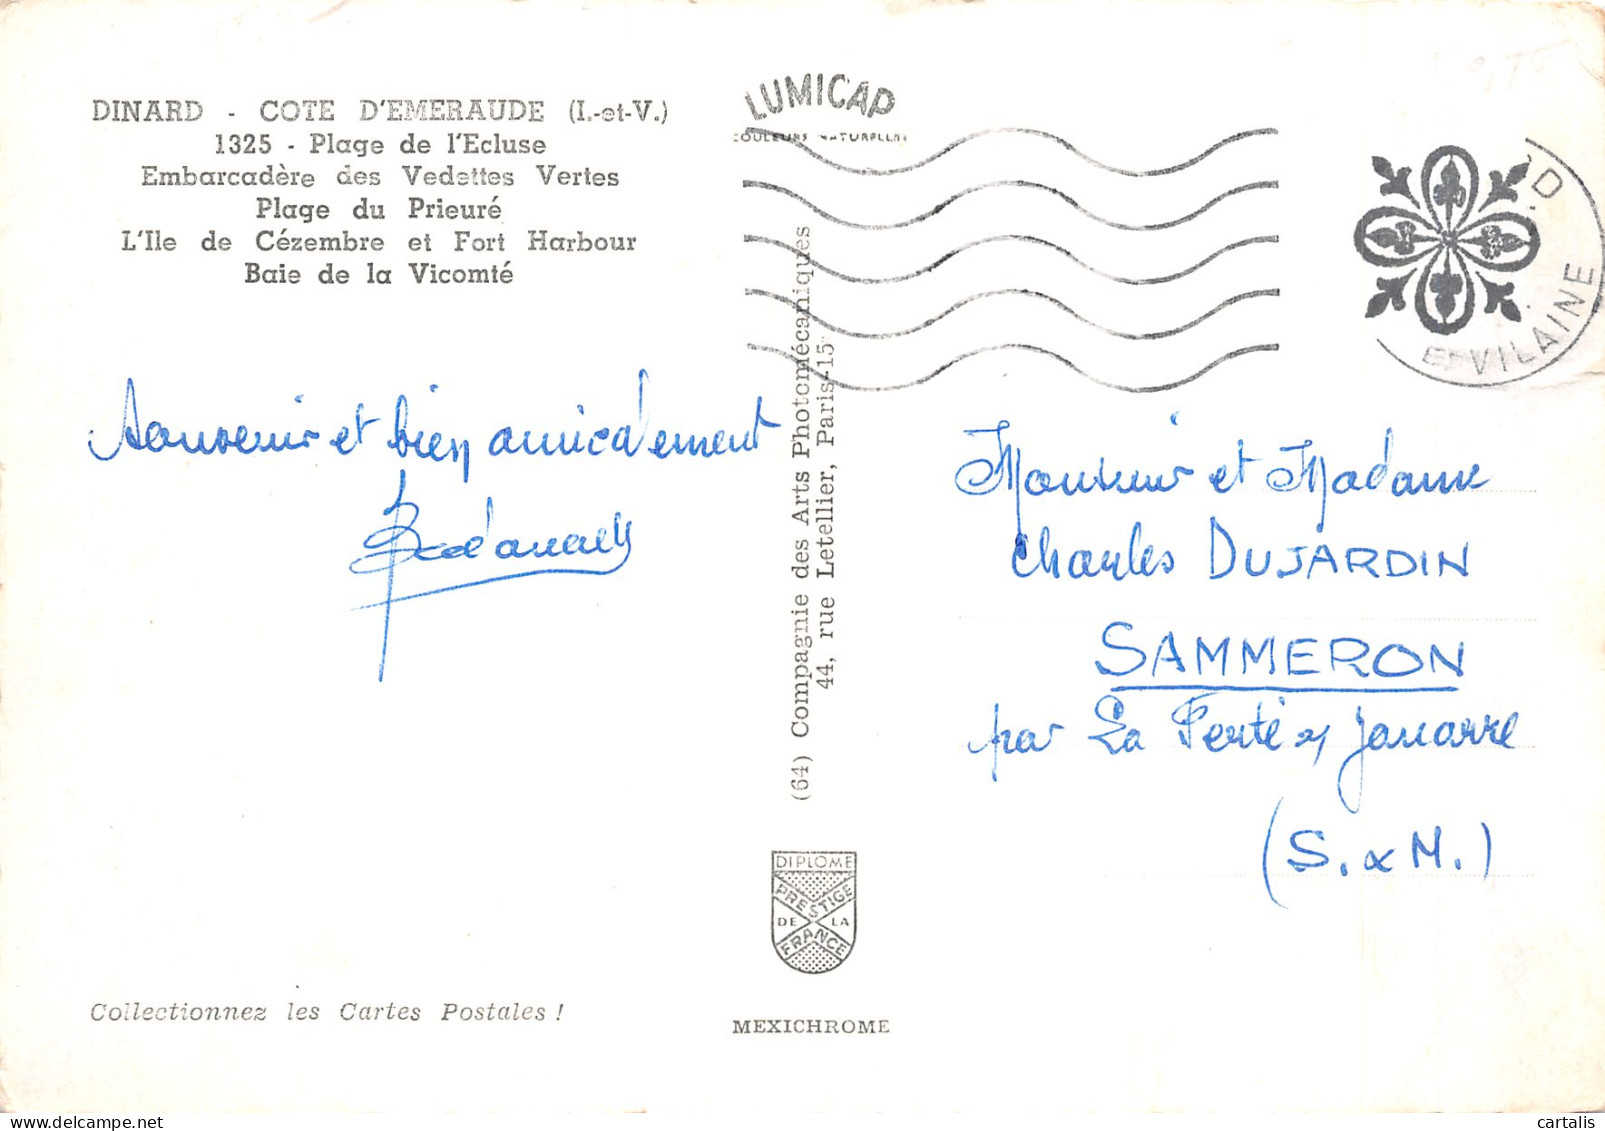 DINARD - COTE D'EMERAUDE (I.-et-V.)
1325 - Plage de l'Ecluse
Embarcadère des Vedettes Vertes
Plage du Prieuré
L'Ile de Cézembre et Fort Harbour
Baie de la Vicomté
LUMICAP
COULEURS NATURELLES
D
ET VILAINE
Souvenir et bien amicalement
(64) Compagnie des Arts Photomécaniques
44, rue Letellier, Paris-15
Monsieur et Madame
Charles DUJARDIN
SAMMERON
par La Ferté s/ Jouarre
(S. & M.)
DIPLOME
PRESTIGE
DE LA
FRANCE
Collectionnez les Cartes Postales !
MEXICHROME
cartalis